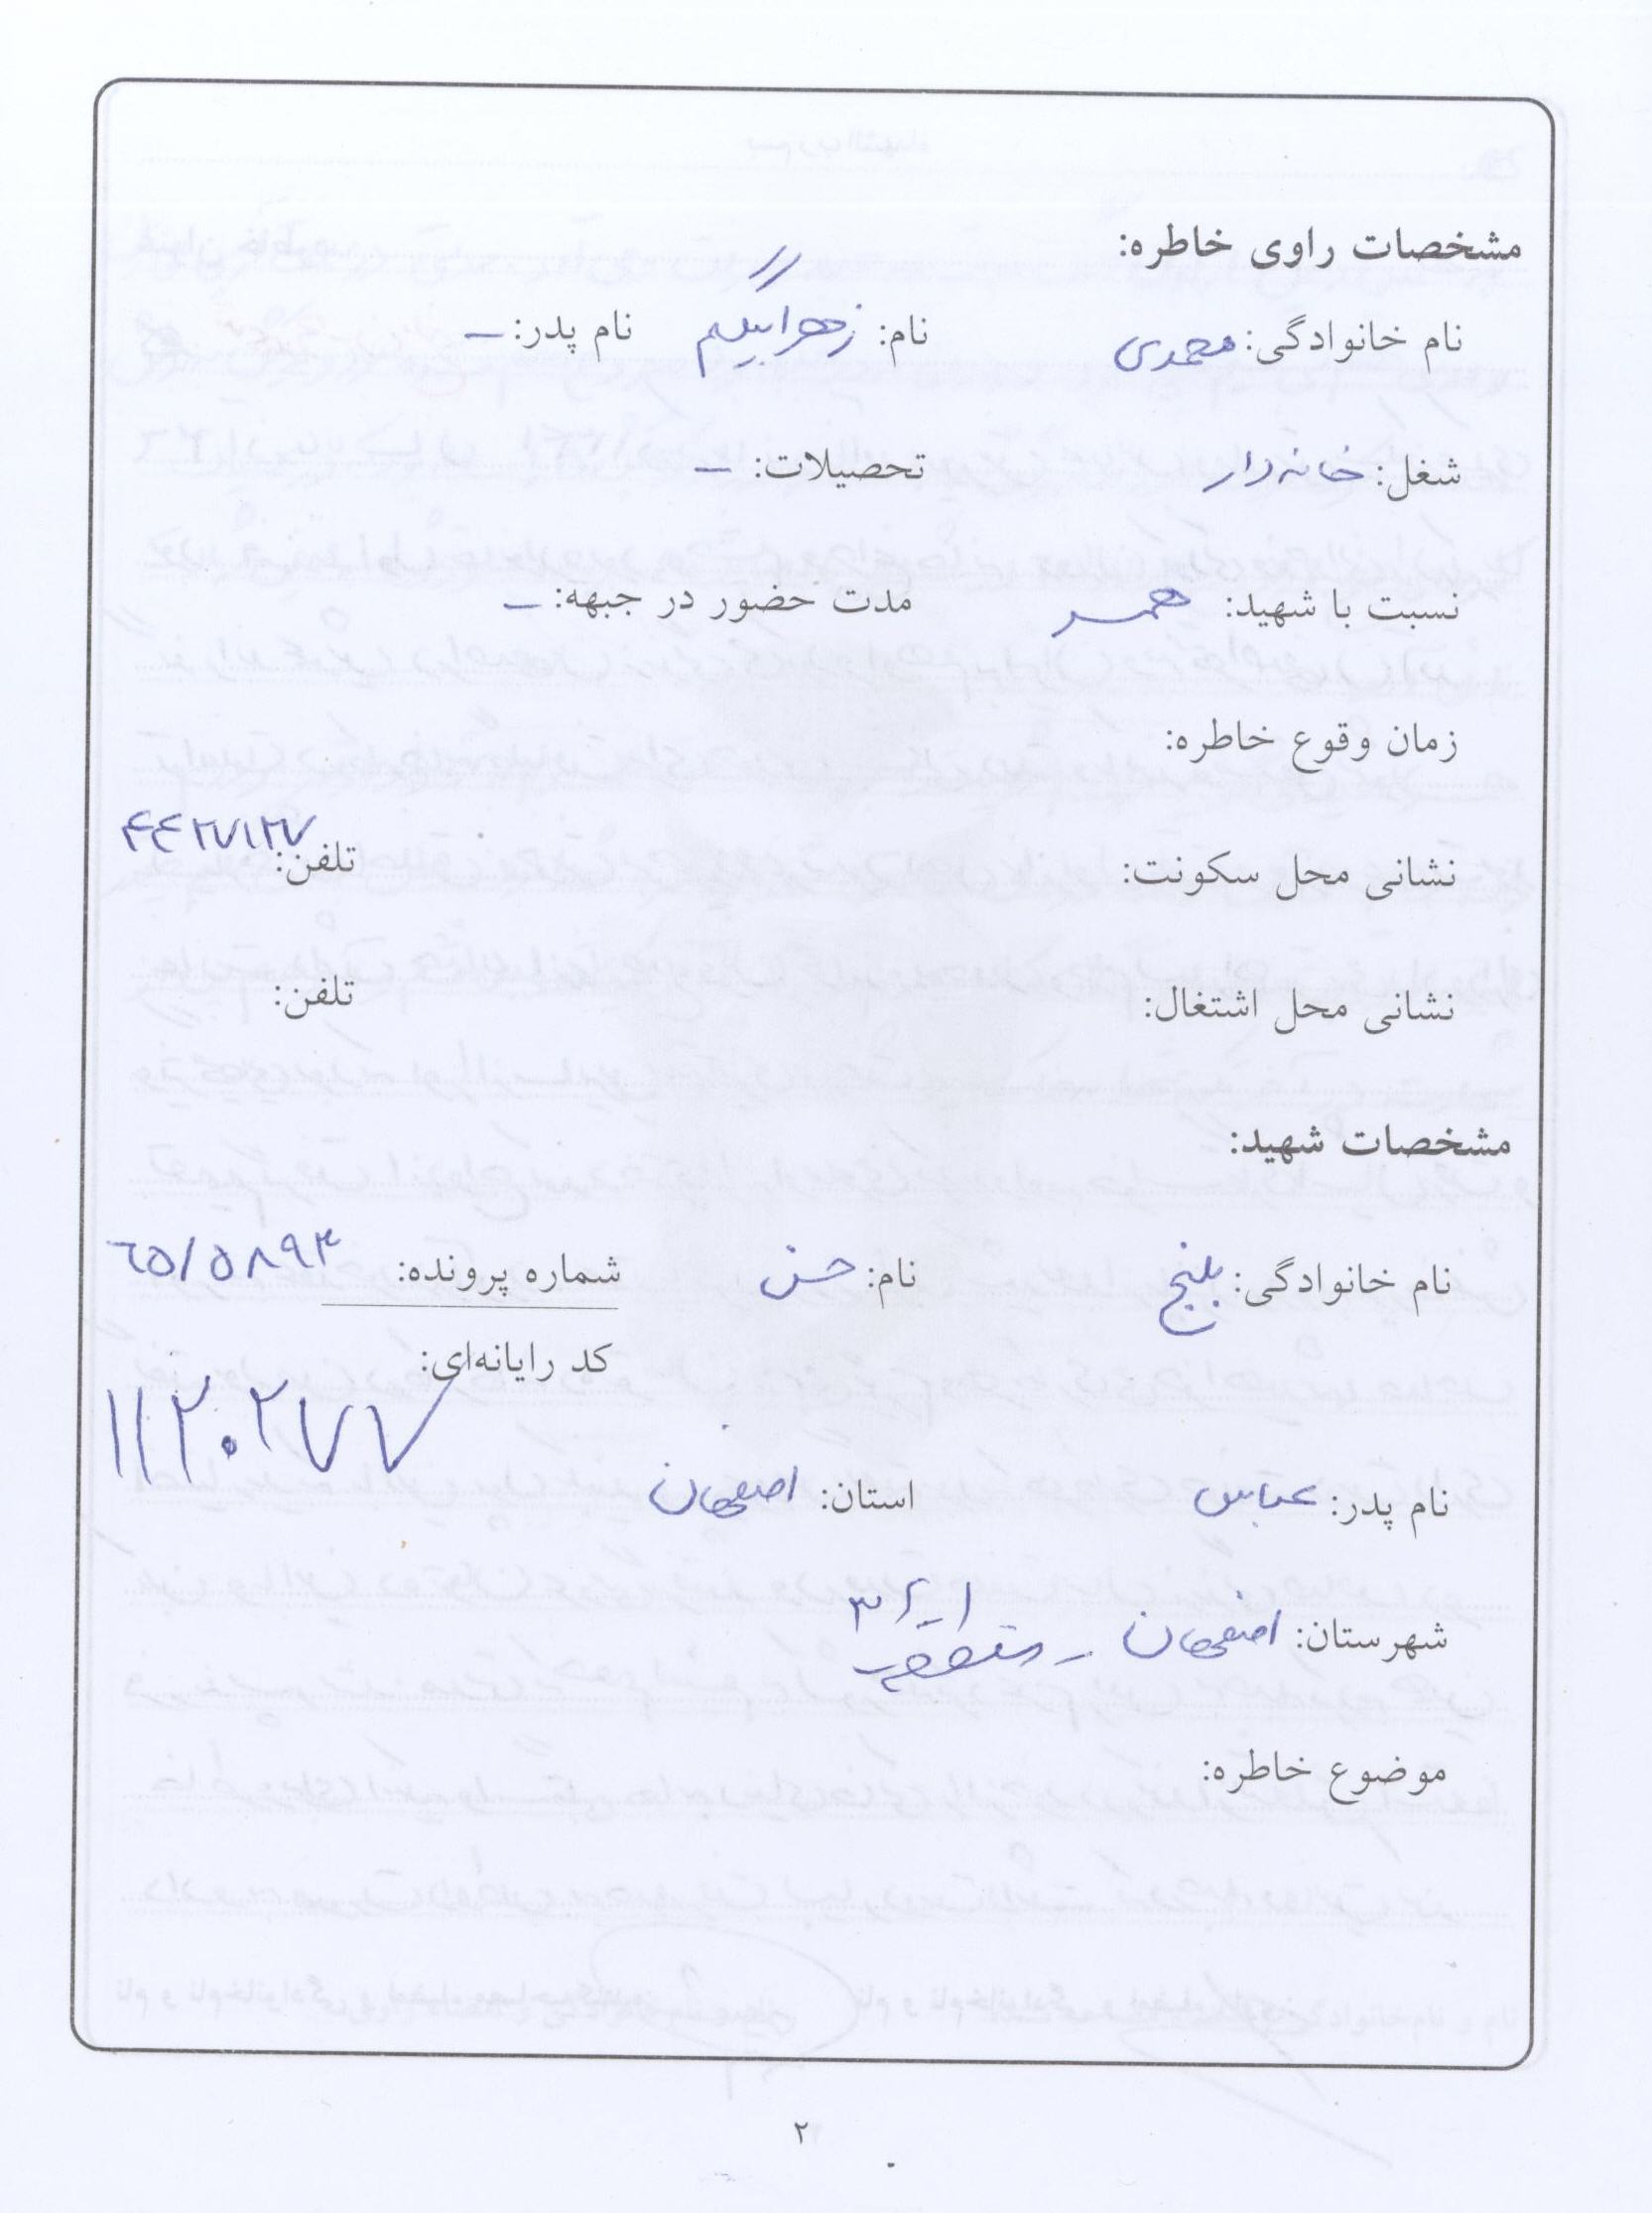 مشخصات راوی خاطره:
نام خانوادگی: محمدی نام: زهرا بیگم نام پدر: –
شغل: خانه دار تحصیلات: –
نسبت با شهید: همسر مدت حضور در جبهه: –
زمان وقوع خاطره:
نشانی محل سکونت: تلفن: ۴۴۲۷۱۲۷
نشانی محل اشتغال: تلفن:
مشخصات شهید:
نام خانوادگی: بلنج نام: حسن شماره پرونده: ۶۵/۵۸۹۳
کد رایانه‌ای: ۱۱۲۰۲۷۷
نام پدر: عباس استان: اصفهان
شهرستان: اصفهان – منطقه ۳
موضوع خاطره:
۲